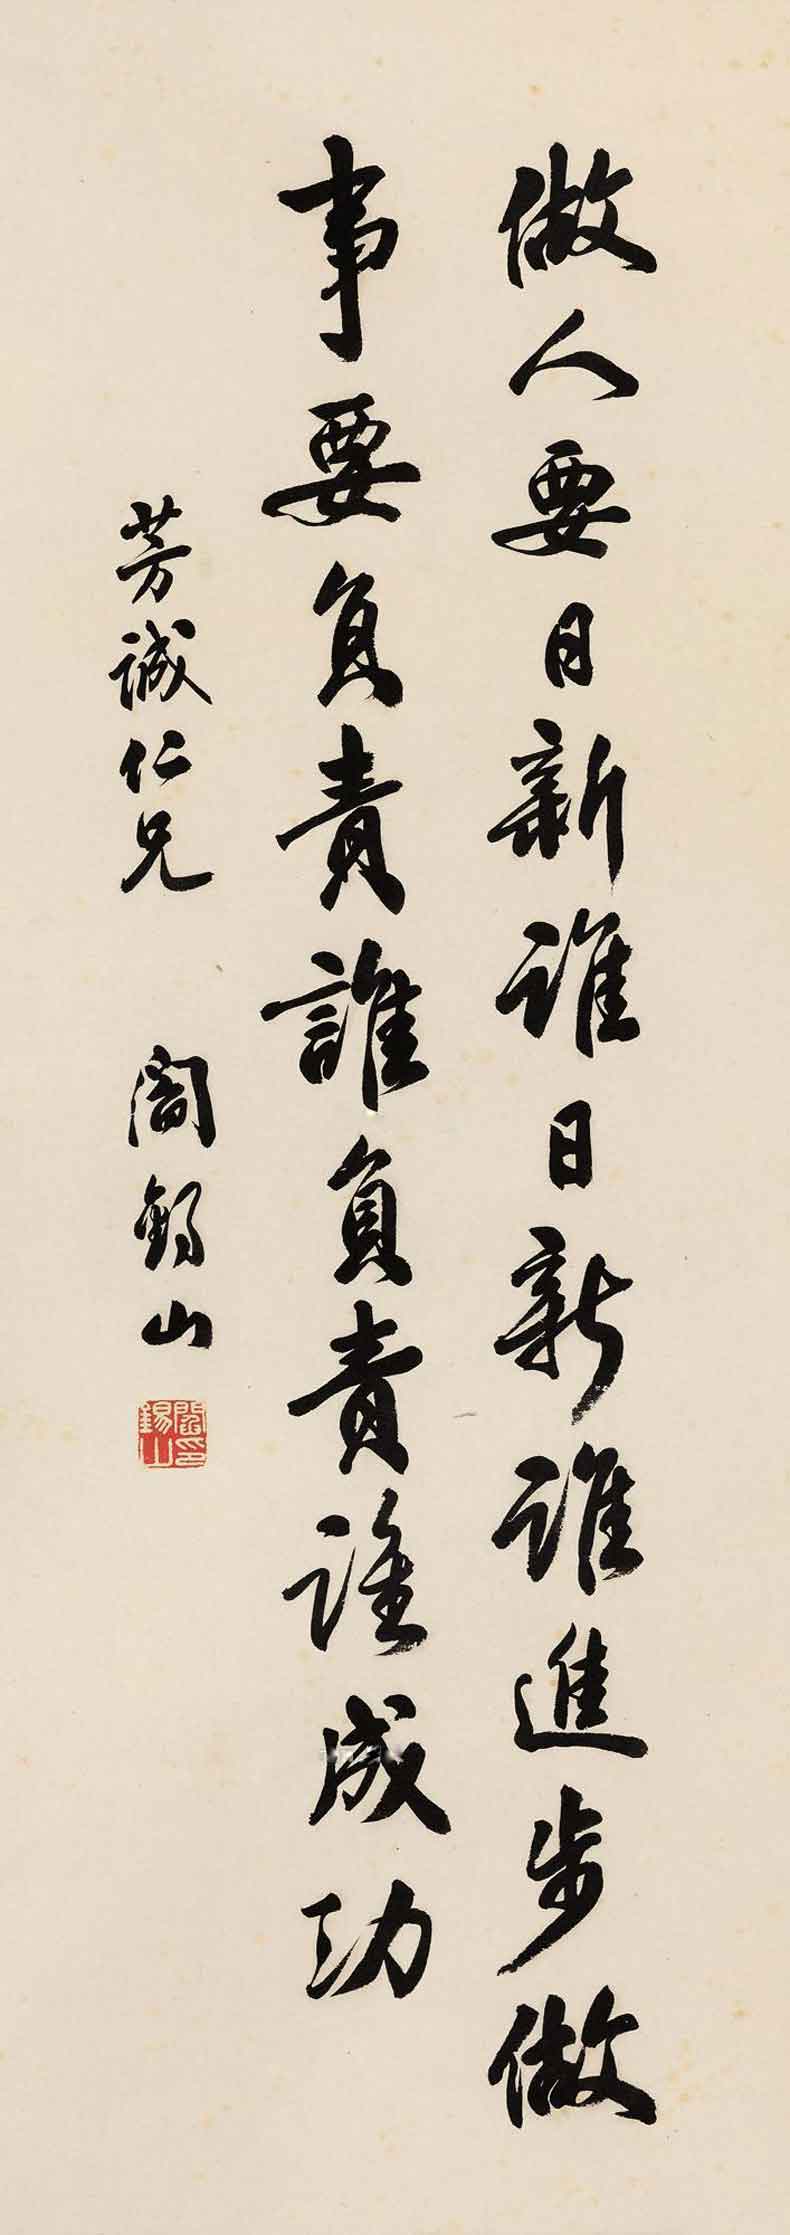 做人要日新誰日新誰進步做
事要負責誰負責誰成功
芳誠仁兄 閻錫山
閻錫山印